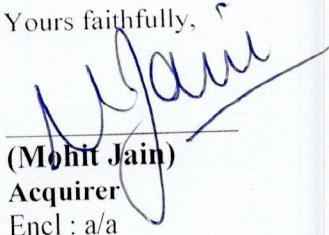 Yours faithfully,
MJain
(Mohit Jain)
Acquirer
Encl : a/a